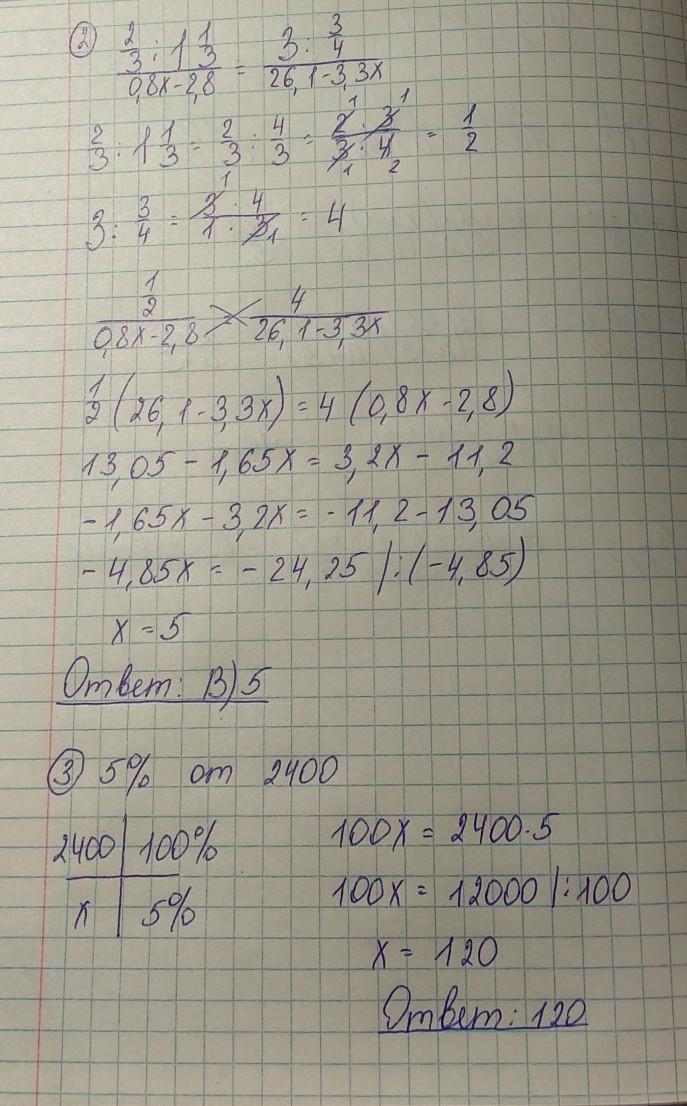 ② 2/3 : 1 1/3 / 0,8x-2,8 = 3 : 3/4 / 26,1-3,3x
2/3 : 1 1/3 = 2/3 : 4/3 = 2 · 3 / 3 · 4 = 1/2
3 : 3/4 = 3 · 4 / 1 · 3 = 4
1/2 / 0,8x-2,8 = 4 / 26,1-3,3x
1/2 (26,1-3,3x) = 4 (0,8x-2,8)
13,05 - 1,65x = 3,2x - 11,2
-1,65x - 3,2x = -11,2-13,05
-4,85x = -24,25 |:(-4,85)
x = 5
Ответ: В) 5
③ 5% от 2400
2400 | 100%
x | 5%
100x = 2400·5
100x = 12000 |:100
x = 120
Ответ: 120